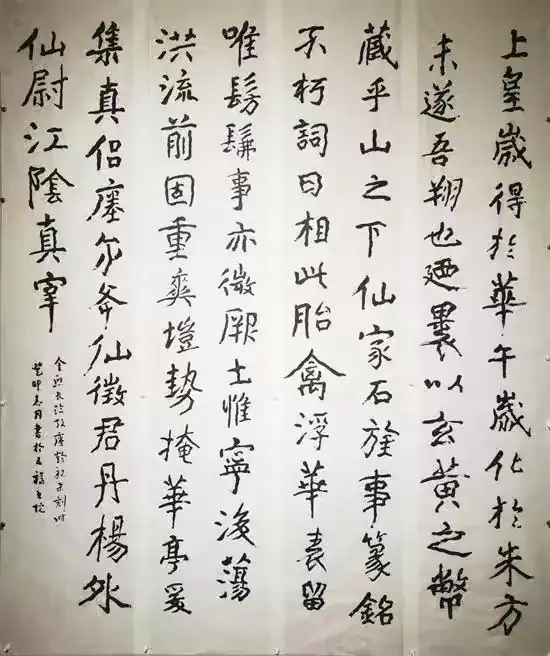 上皇歲得於華午歲化於朱方
未遂吾翔也廼裹以玄黃之幣
藏乎山之下仙家石旌事篆銘
不朽詞曰相此胎禽浮華表留
唯髣髴事亦微厥土惟寧後蕩
洪流前固重爽塏勢掩華亭爰
集真侶瘞尔夅仙徵君丹楊外
仙尉江陰真宰
癸卯書於五福